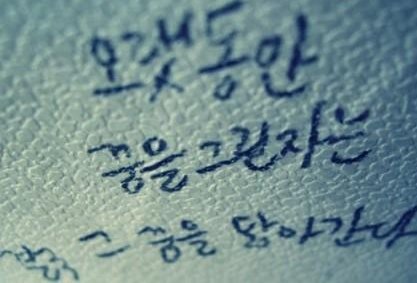 오랫동안
꿈을 그린자는
그 꿈을 닮아간다